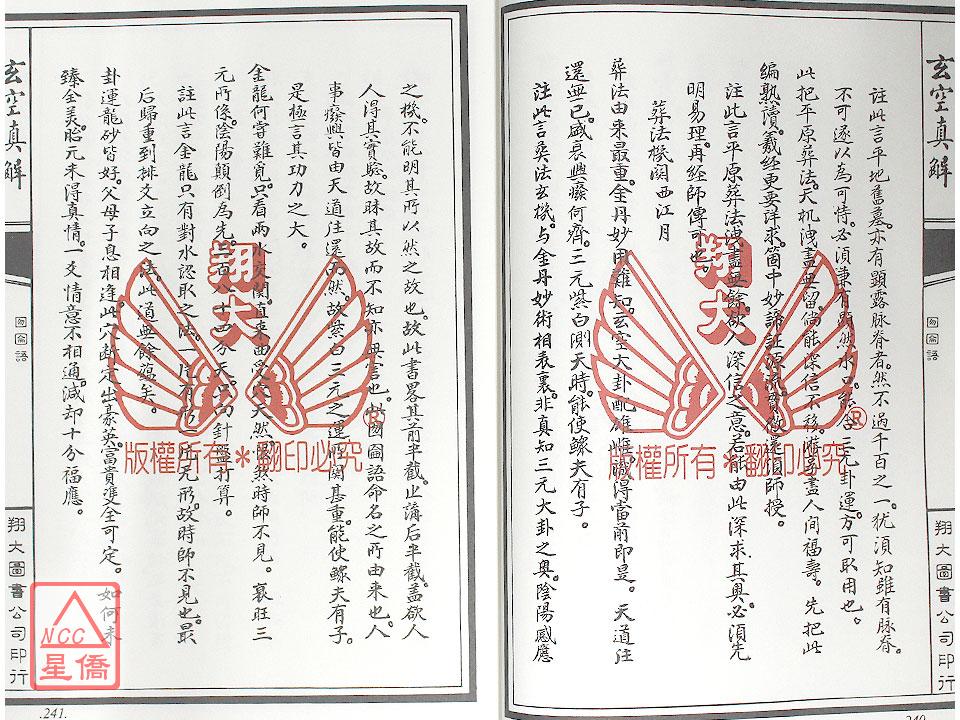 玄空真解
囫圇語
翔大圖書公司印行
註此言平地舊墓亦有顯露脉脊者。然不過千百之一。犹須知雖有脉脊。
不可遂以為可恃。必須兼有顯然水口。能合三元卦運。方可取用也。
此把平原葬法。天机洩盡無留。倘能深信不移。遊尽人间福壽。先把此
編熟讀。羲經更要詳求。箇中妙諦証源流。賢徵還須師授。
註此言平原葬法洩盡無餘。欲人深信之意。若能由此深求其奥。必須先
明易理。再經師傳可也。
葬法機關西江月
葬法由來最重。金丹妙用難知。玄空大卦配雄雌。識得當前即是。天道往
還無已。盛衰興癈何齊。三元紫白測天時。能使鰥夫有子。
註此言葬法玄機。与金丹妙術相表裏。非真知三元大卦之奥。陰陽感應
.240.
之機。不能明其所以然之故也。故此書畧其前半截。止講后半截。盖欲人
人得其實驗。故昧其故而不知亦無害也。此囫圇語命名之所由來也。人
事癈興皆由天道往還而然。故紫白三元之運所関甚重。能使鰥夫有子。
是極言其功力之大。
金龍何啻難覓。只看兩水交関。直来直受穴天然。　　時師不見。衰旺三
元所像。陰陽顛倒為先。二百八十四分天。只向針盤打算。
註此言金龍只有對水認取之法。一片有形　所无形。故時師不見也。最
后歸重到排爻立向之法。此道無餘蕴矣。
卦運龍砂皆好。父母子息相逢。此穴断定出豪英。富貴雙全可定。如何未
臻全美。胎元未得真情。一爻情意不相通。減却十分福應。
玄空真解
囫圇語
翔大圖書公司印行
.241.
翔大
®
版權所有＊翻印必究
翔大
®
版權所有＊翻印必究
NCC
星僑